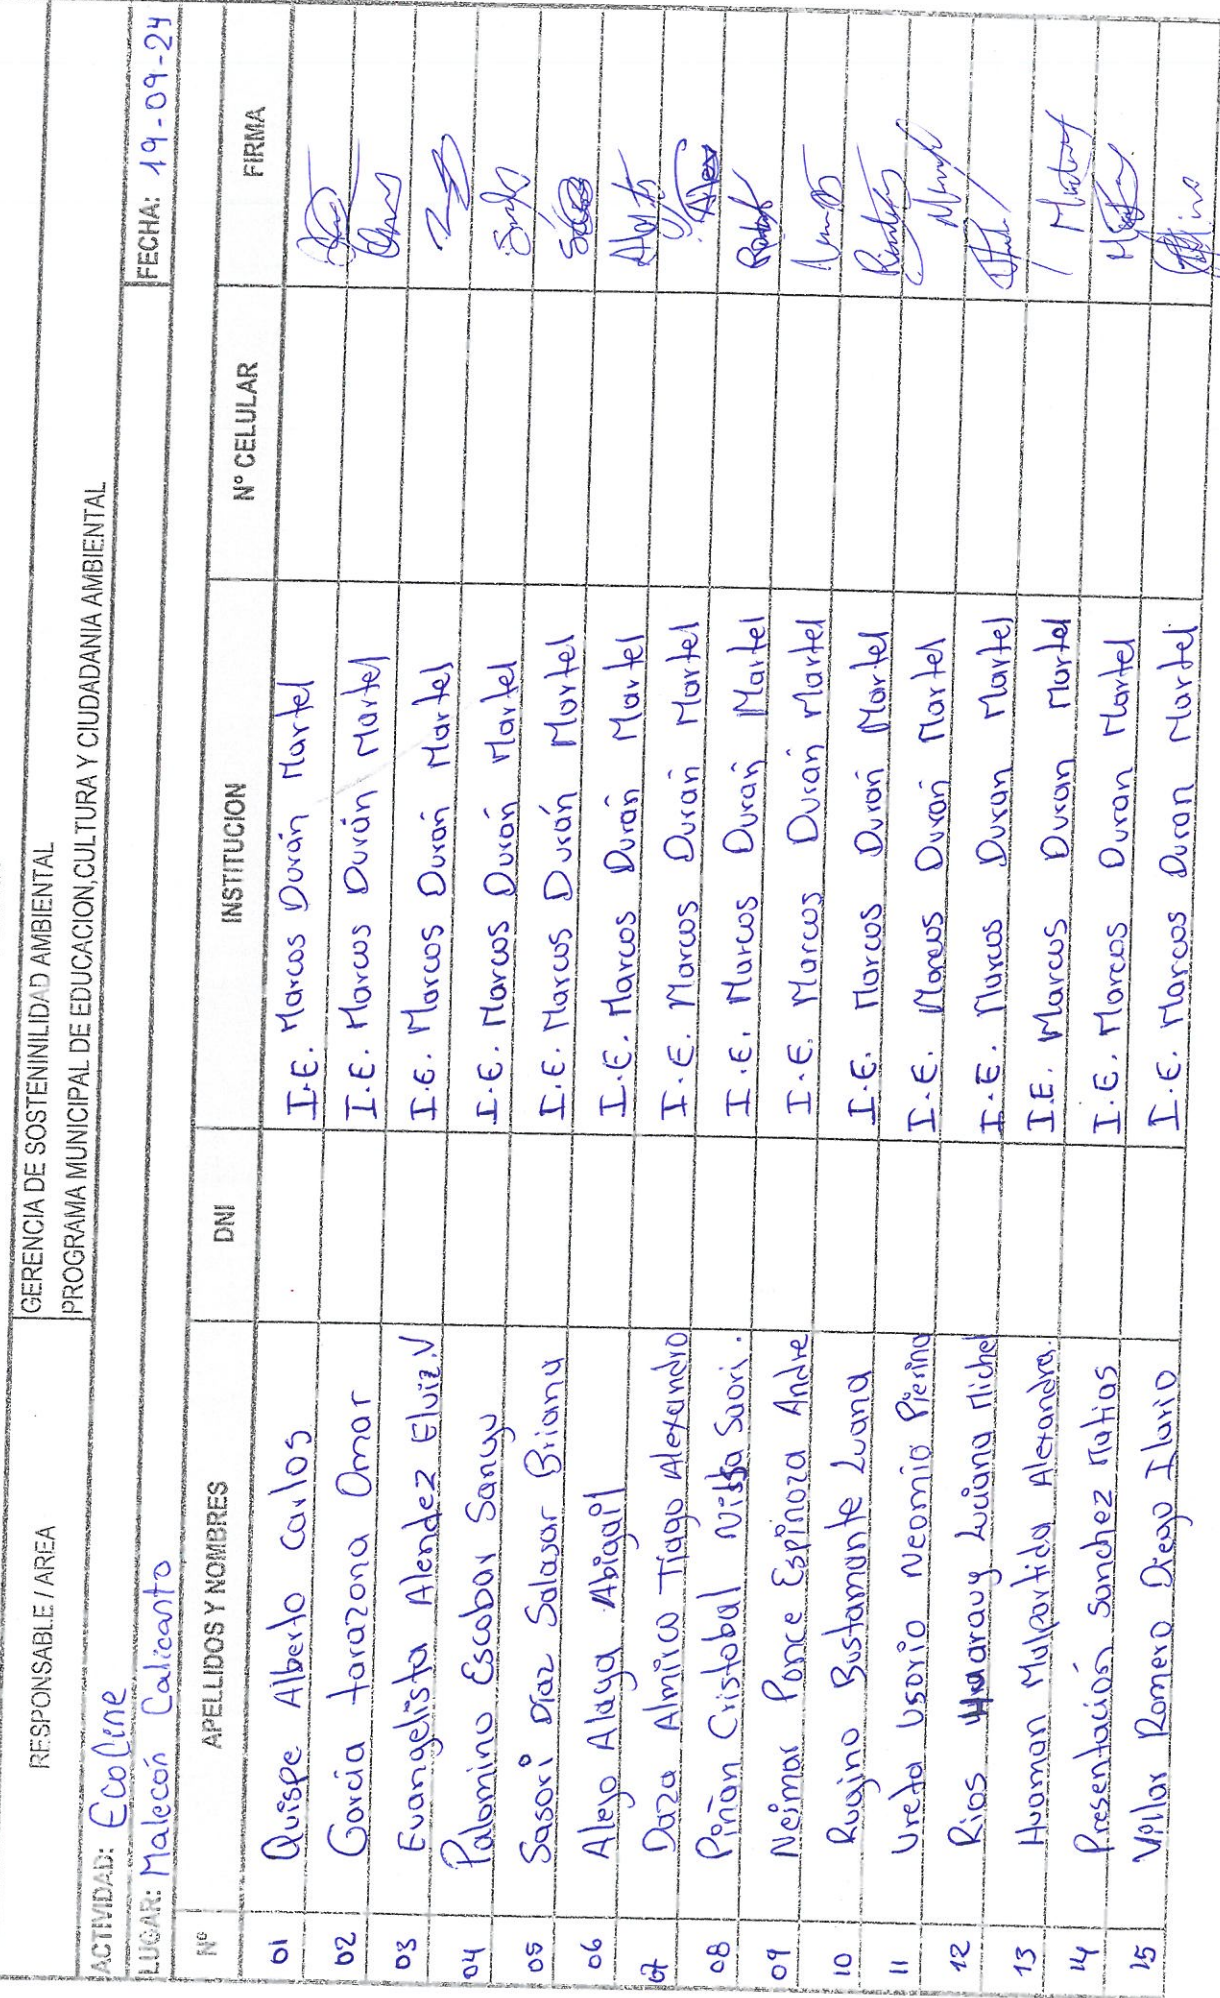 RESPONSABLE / AREA
GERENCIA DE SOSTENINILIDAD AMBIENTAL
PROGRAMA MUNICIPAL DE EDUCACION,CULTURA Y CIUDADANIA AMBIENTAL
ACTIVIDAD: EcoCine
LUGAR: Malecón Calicanto FECHA: 19-09-24
Nº APELLIDOS Y NOMBRES DNI INSTITUCION Nº CELULAR FIRMA
01 Quispe Alberto Carlos I.E. Marcos Durán Martel
02 Garcia tarazona Omar I.E. Marcos Durán Martel
03 Evangelista Alendez Elviz.V I.E. Marcos Durán Martel
04 Palomino Escobar Sanuy I.E. Marcos Durán Martel
05 Sasori Díaz Salasar Briana I.E. Marcos Durán Martel
06 Alejo Alaya Abigail I.E. Marcos Durán Martel
07 Daza Almirco Tiago Alexandro I.E. Marcos Durán Martel
08 Piñan Cristobal Saori. I.E. Marcos Durán Martel
09 Neimar Ponce Espinoza Andre I.E. Marcos Durán Martel
10 Rugino Bustamante Luana I.E. Marcos Durán Martel
11 Ureta Usorio Neomio Pierina I.E. Marcos Durán Martel
12 Rios Luciana Michel I.E. Marcos Duran Martel
13 Huaman Mulpartida Alexandra. I.E. Marcos Duran Martel
14 Presentación Sanchez Matias I.E. Marcos Duran Martel
15 Villar Romero Diego Ilario I.E. Marcos Duran Martel